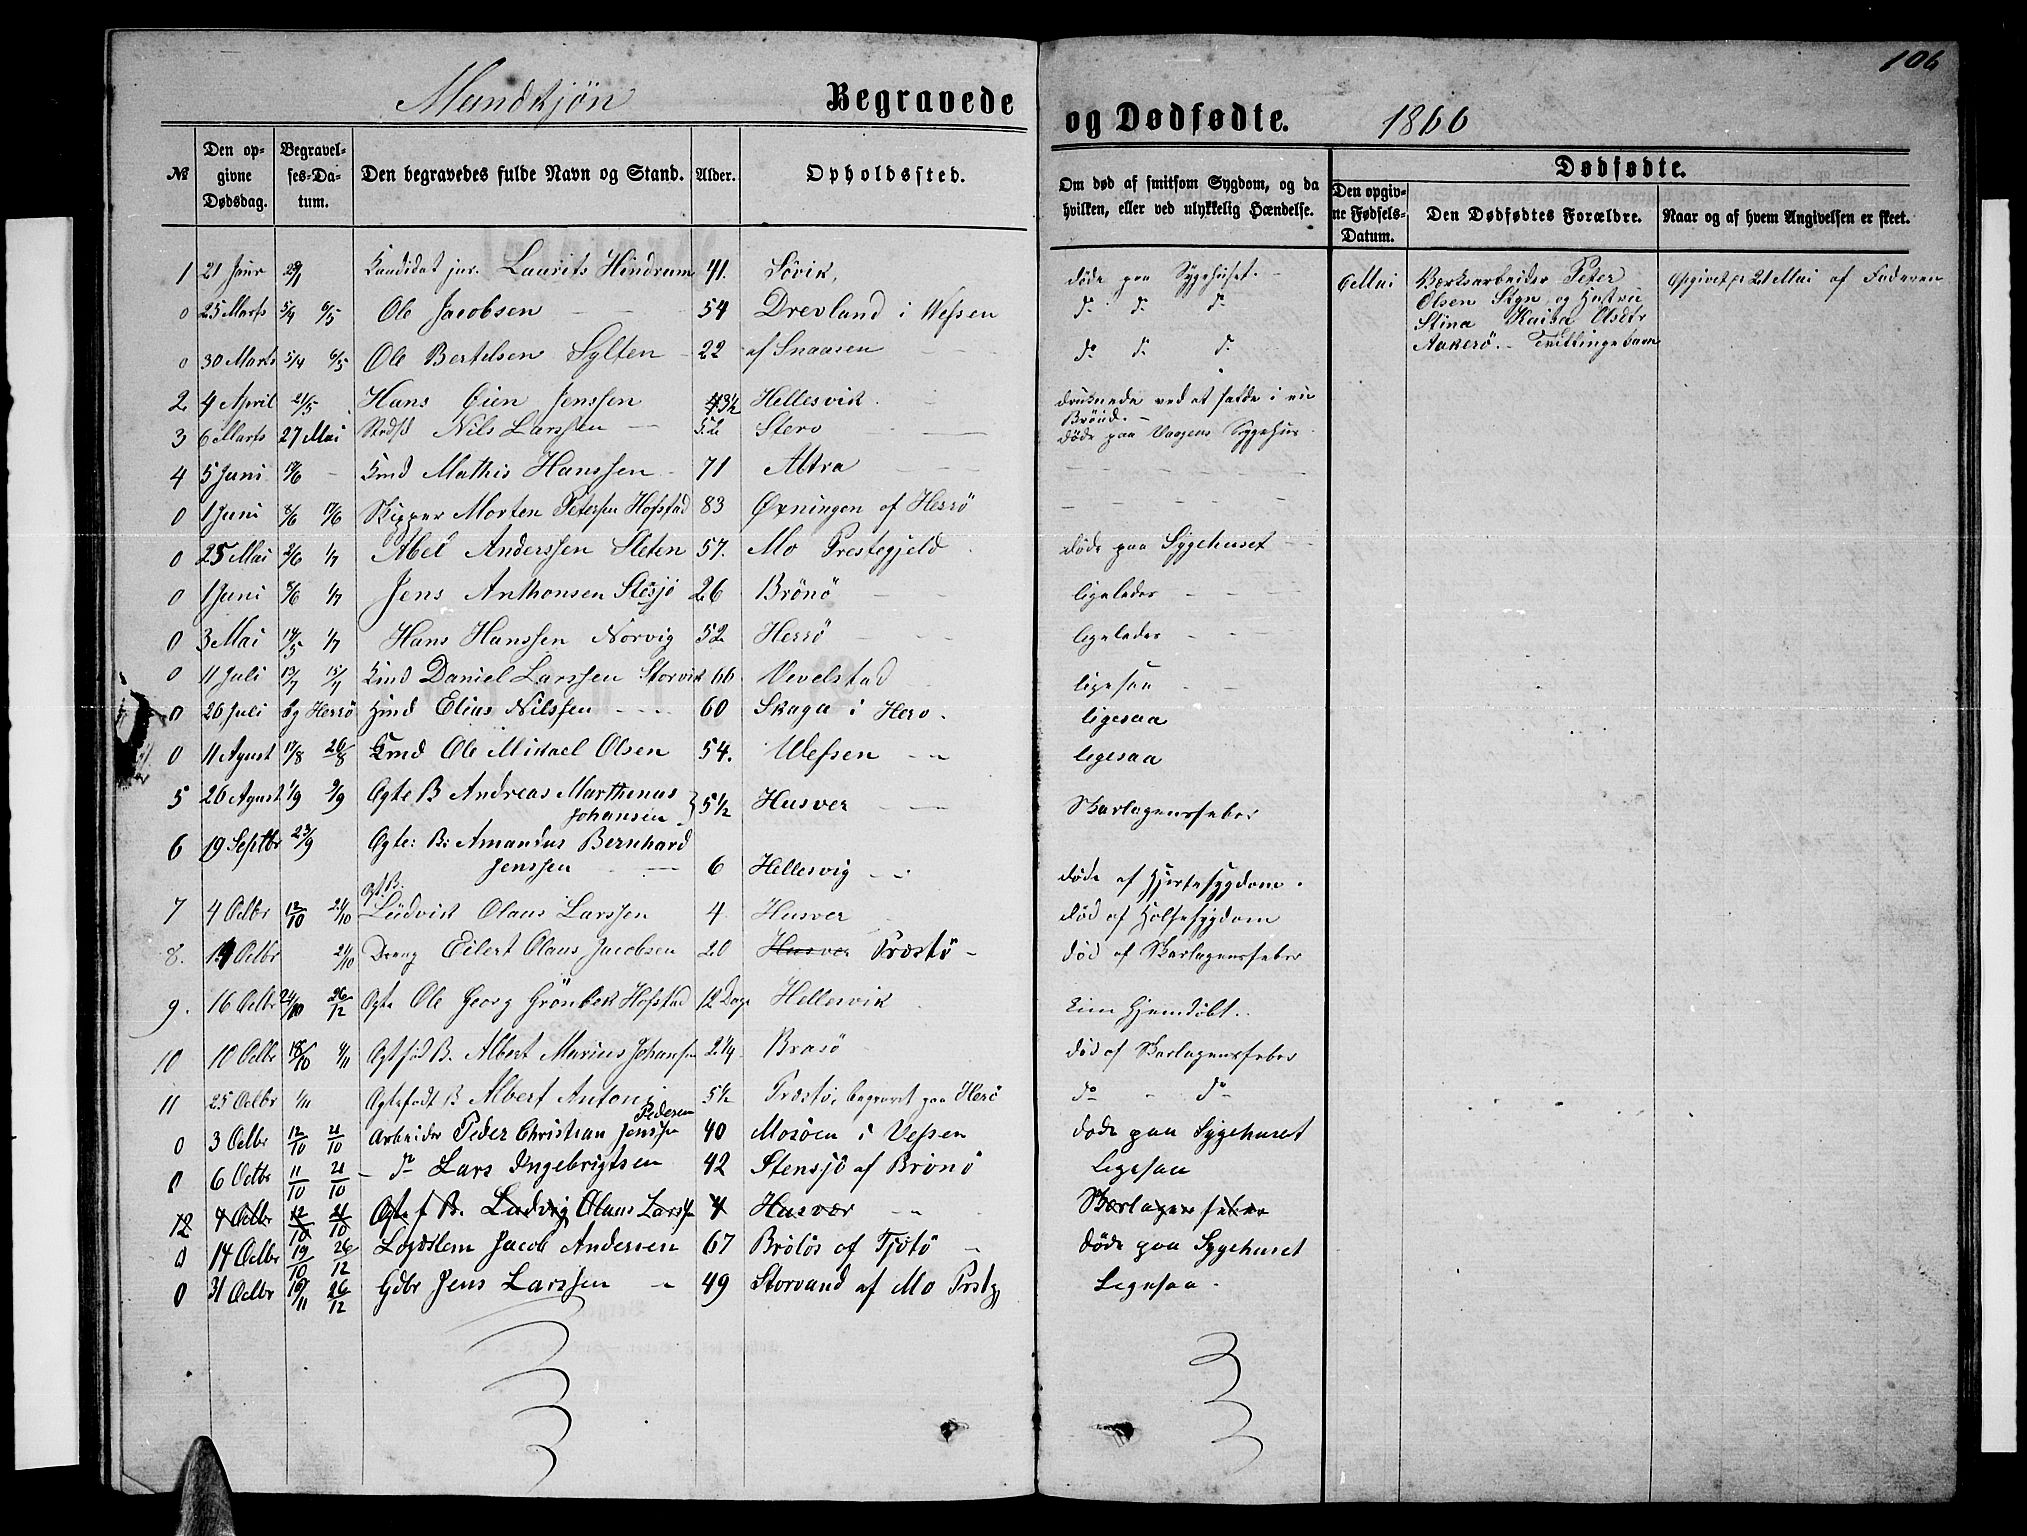 106
Mandkjøn Begravede og Dødfødte. 1866
№ Den opgivne Dødsdag. Begravelses-Datum. Den begravedes fulde Navn og Stand. Alder. Opholdssted. Om død af smitsom Sygdom, og da hvilken, eller ved ulykkelig Hændelse. Dødfødte. Den opgivne Fødsels-Datum. Den Dødfødtes Forældre. Naar og af hvem Angivelsen er skeet.
1 21 Janr Kandidat jur. Laurits Hindrum 41. Søvik, døde paa Sygehuset. 6 Mai Værksarbeider Peter Opgivet pr 21 Mai af Faderen
Olsen Stgn og Hustru
0 25 Marts 5/4 6/5 Ole Jacobsen 54 Drevland i Vefsen do do do
Stina Kaisa Olsdtr
0 30 Marts 5/4 6/5 Ole Bertelsen Sylten 22 af Snaasen do do do
Aakerø. Tvillingebarn
2 4 April 21/5 Hans Eien Jenssen 3½ Hellesvik. druknede ved at falde i en
Brønd.
3 6 Marts 27 Mai Nils Larssen 52 Stero døde paa Vaagens Sygehus
4 5 Juni 17/6 Kmd Mathis Hanssen 71 Altra
0 1 Juni 8/6 17/6 Skipper Morten Petersen Hofstad 83 Øxningen af Herrö
0 25 Mai 2/6 1/7 Abel Anderssen Sleten 57. Mo Prestegjeld døde paa Sygehuset
0 1 Juni 8/6 1/7 Jens Anthonsen Stosjö 26 Brönö ligeledes
0 3 Mai 14/5 1/7 Hans Hanssen Norvig 52 Herrö ligeledes
0 11 Juli 13/7 15/7 Kmd Daniel Larssen Storvik 66 Vevelstad ligesaa
0 20 Juli bg Herrö Hmd Elias Nilssen 60 Skaga i Hero. ligesaa
0 11 Agust 17/8 26/8 Kmd Ole Mikael Olsen 54. Vefsen ligesaa
5 26 Agust 1/9 9/9 Ægte B Andreas Marthinus
Johansen 5½ Husver Skarlagensfeber
6 19 Septbr 23/9 Ægte: B: Amandus Bernhard
Jenssen 6 Hellesvig døde af Hjertesygdom.
7 4 Octbr 12/10 21/10 Ægt. B. Ludvik Olaus Larssen 4 Husver død af Halsesygdom
8. 14 Octbr 21/10 Dreng Eilert Olaus Jacobsen 20 Husver Præstö død af Skarlagensfeber
9. 16 Octbr 24/10 26/12 Ægte Ole Georg Grönbek Hofstad 12 Dage Hellesvik Hjemdöbt.
10 10 Octbr 18/10 4/11 Ægtfød B. Albert Marius Johansen 2¼ Brasö død af Skarlagensfeber
11 25 Octbr 1/11 Ægtefødt B Albert Antoni
Pedersen 5½ Præstö, begravet paa Herö do do
0 3 Octbr 12/10 21/10 Arbeider Peder Christian Jenssen 40 Mosöen i Vefsen døde paa Sygehuset
0 6 Octbr 11/10 21/10 do Lars Ingebrigtsen 42 Stensjö af Brönö Ligesaa
12 4 Octbr 12/10 21/10 Ægte f B. Ludvig Olaus Larssen 4 Husvær Skarlagensfeber
0 14 Octbr 19/10 26/12 Lægdslem Jacob Andersen 67 Brölös af Tjötö døde paa Sygehuset
0 31 Octbr 26/12 Gdbr Jens Larssen 49 Storvand af Mo Prstg Ligesaa.